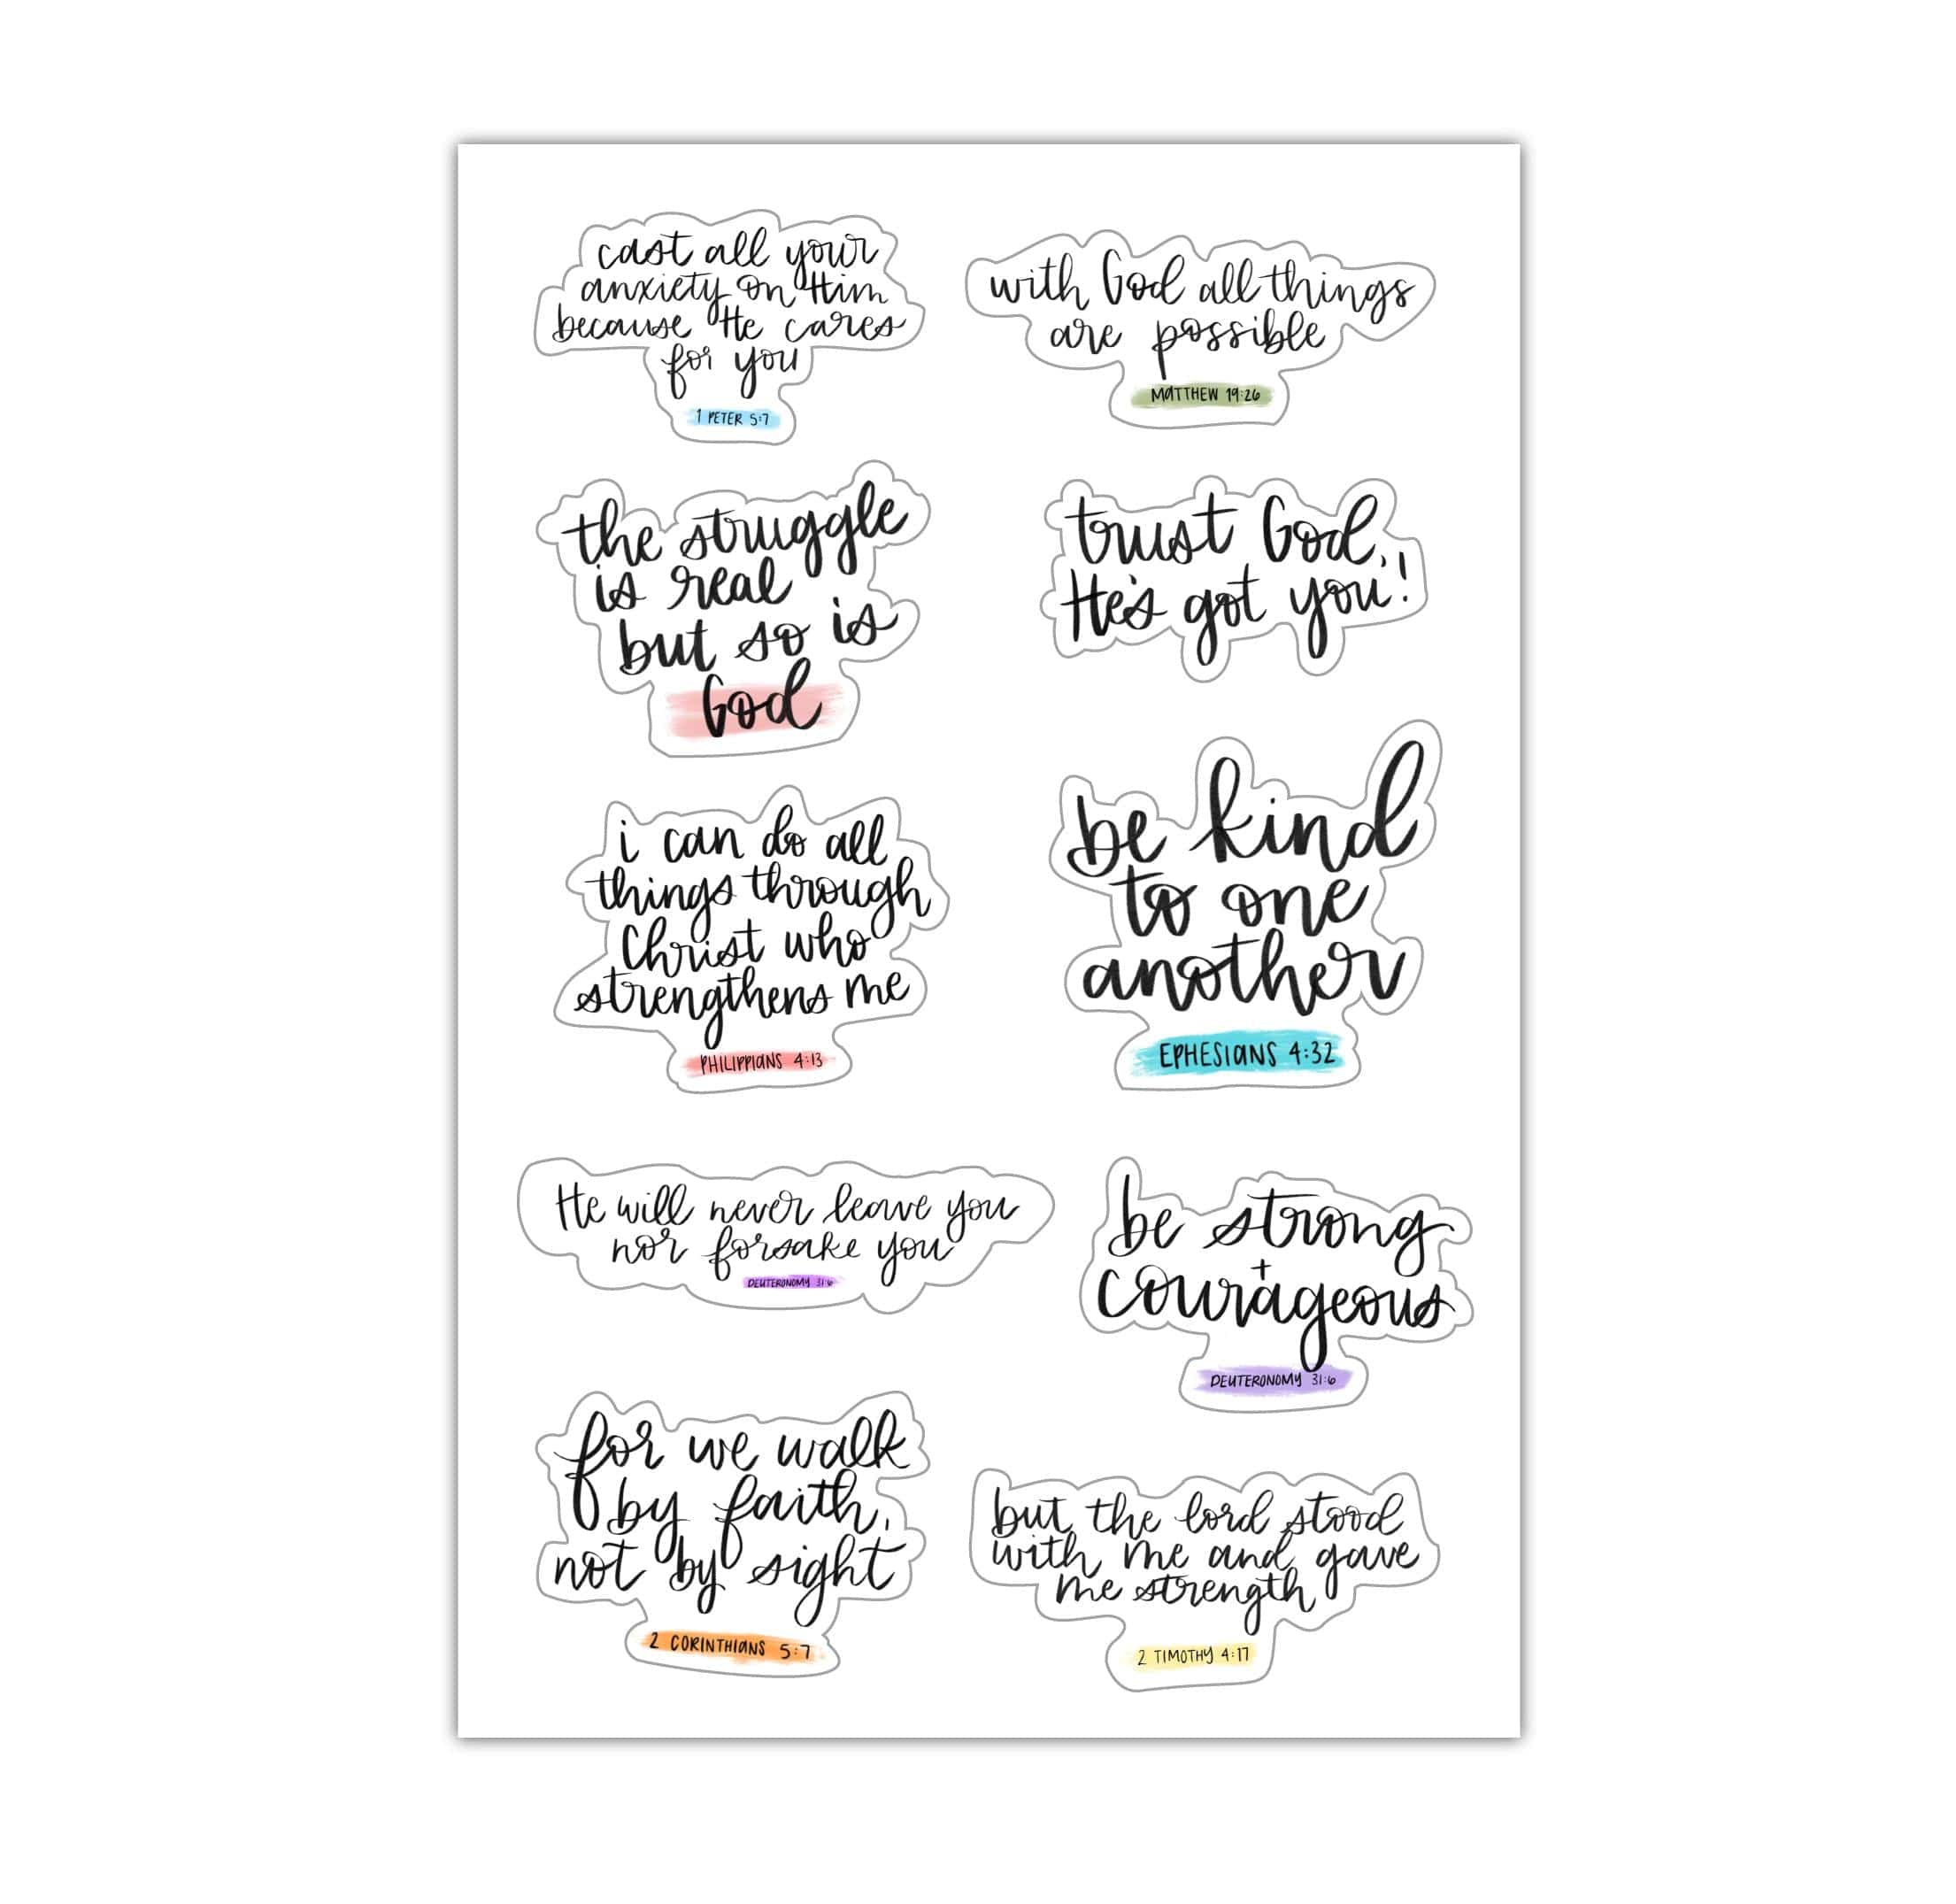 cast all your
anxiety on Him
because He cares
for you
1 PETER 5:7
with God all things
are possible
MATTHEW 19:26
the struggle
is real
but so is
God
trust God,
He's got you!
i can do all
things through
Christ who
strengthens me
PHILIPPIANS 4:13
be kind
to one
another
EPHESIANS 4:32
He will never leave you
nor forsake you
DEUTERONOMY 31:6
be strong
+
courageous
DEUTERONOMY 31:6
for we walk
by faith,
not by sight
2 CORINTHIANS 5:7
but the lord stood
with me and gave
me strength
2 TIMOTHY 4:17